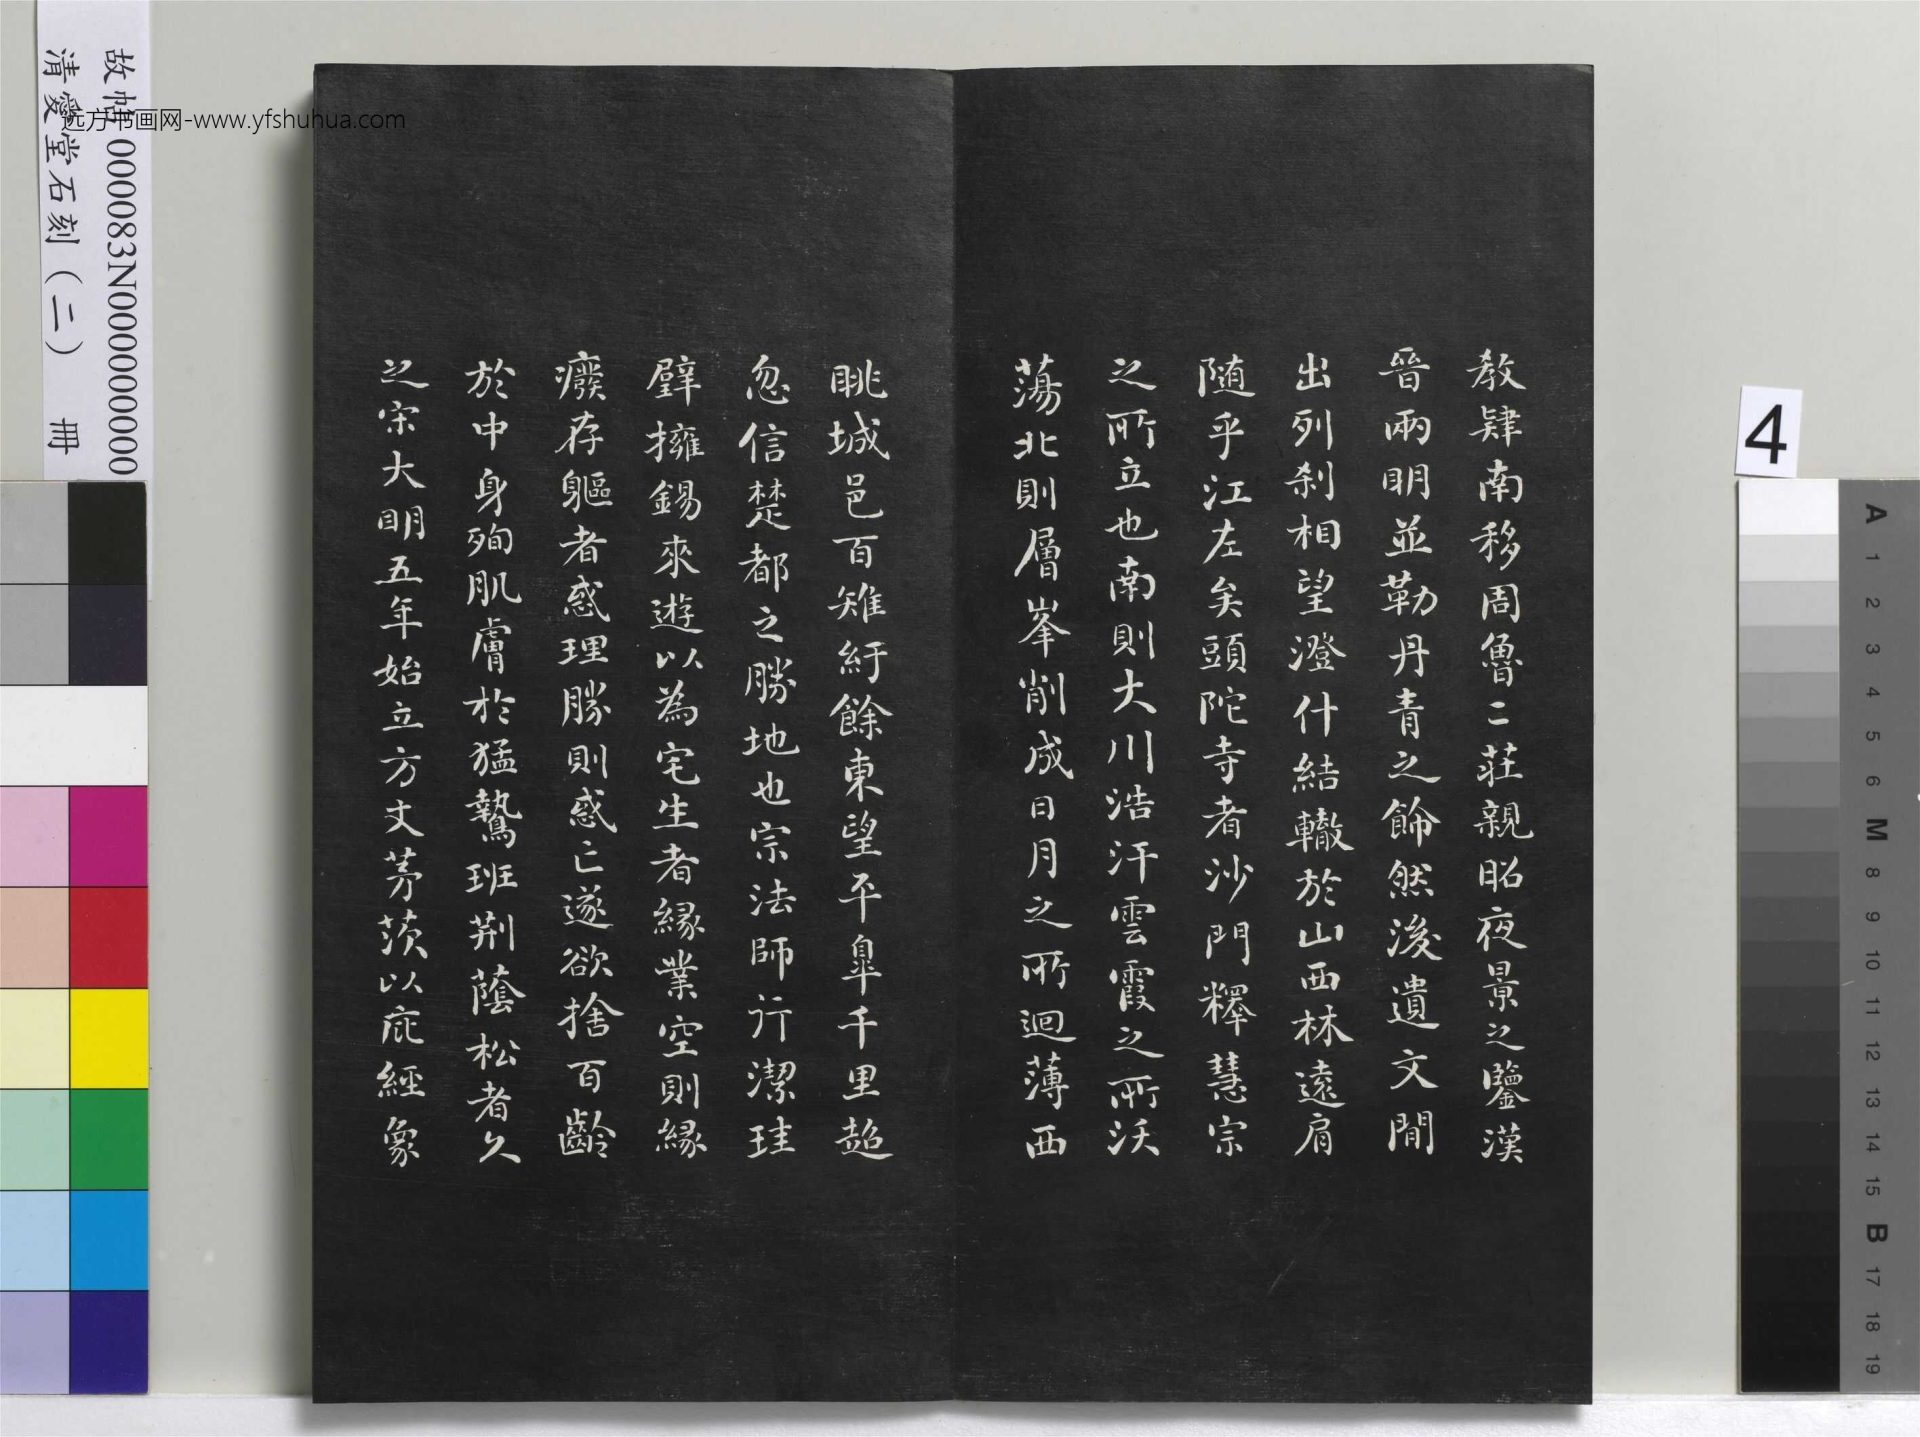 教肄南移周魯二莊親昭夜景之鑒漢
晉兩明並勒丹青之飾然後遺文閒
出列刹相望澄什結轍於山西林遠肩
隨乎江左矣頭陀寺者沙門釋慧宗
之所立也南則大川浩汗雲霞之所沃
蕩北則層峯削成日月之所迴薄西
眺城邑百雉紆餘東望平臯千里超
忽信楚都之勝地也宗法師行潔珪
璧擁錫來遊以為宅生者緣業空則緣
癈存軀者惑理勝則惑亡遂欲捨百齡
於中身殉肌膚於猛鷙班荆蔭松者久
之宋大明五年始立方丈茅茨以庇經象
故帖 000083N000000000
清愛堂石刻(二) 冊
远方书画网-www.yfshuhua.com
4
A
1
2
3
4
5
6
M
8
9
10
11
12
13
14
15
B
17
18
19